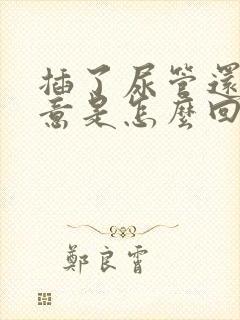 插了尿管還
意是怎麼回
鄭良霄